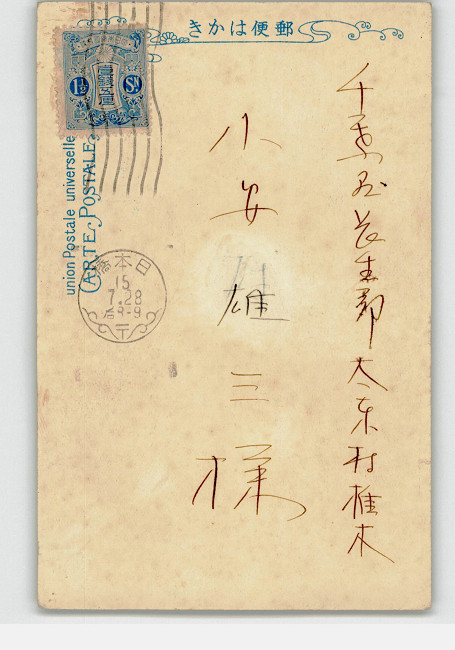 郵便はかき
千葉县長生郡太東村椎木
小安雄三様
1½ Sn
union Postale universelle
CARTE POSTALE
日本橋
15
7.28
后8-9
〒